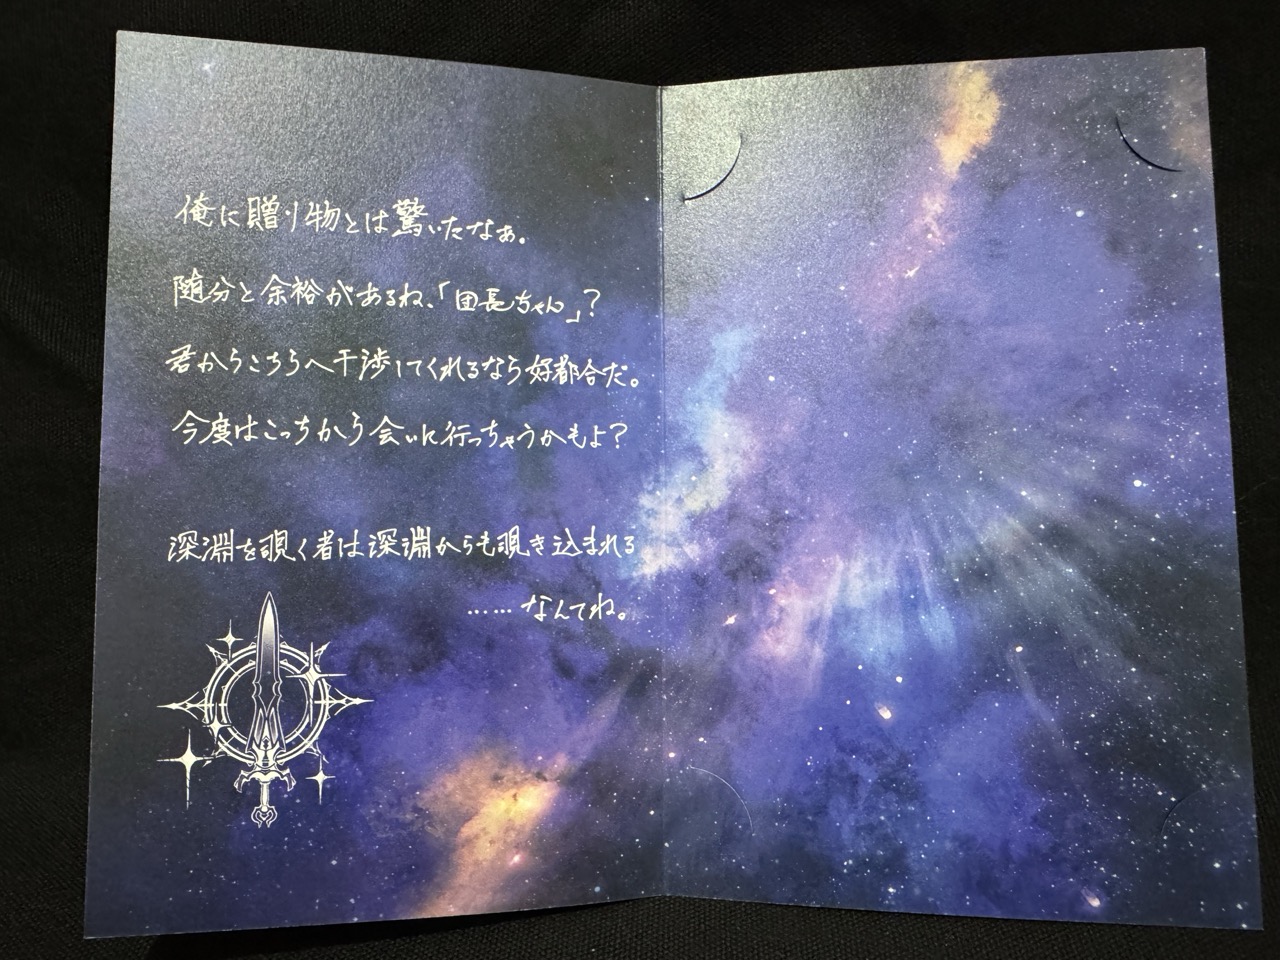 俺に贈り物とは驚いたなぁ。
随分と余裕があるね、「団長ちゃん」?
君からこちらへ干渉してくれるなら好都合だ。
今度はこっちから会いに行っちゃうかもよ?
深淵を覗く者は深淵からも覗き込まれる
……なんてね。